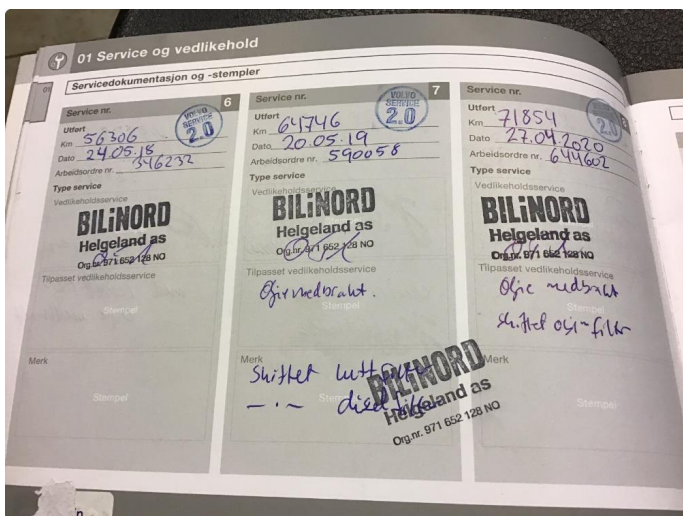 01 Service og vedlikehold
01
Servicedokumentasjon og -stempler
Service nr. 6
Utført
Km 56306
Dato 24.05.18
Arbeidsordre nr. 346232
VOLVO SERVICE 2.0
Type service
Vedlikeholdsservice
BILiNORD
Helgeland as
Org.nr. 971 652 128 NO
Tilpasset vedlikeholdsservice
Stempel
Merk
Service nr. 7
Utført
Km 64746
Dato 20.05.19
Arbeidsordre nr. 590058
VOLVO SERVICE 2.0
Type service
Vedlikeholdsservice
BILiNORD
Helgeland as
Org.nr. 971 652 128 NO
Tilpasset vedlikeholdsservice
Stempel
Merk
Skiftet luftfilter
Stempel
BILiNORD
Helgeland as
Org.nr. 971 652 128 NO
Service nr.
Utført
Km 71854
Dato 27.04.2020
Arbeidsordre nr. 644602
2.0
Type service
Vedlikeholdsservice
BILiNORD
Helgeland as
Org.nr. 971 652 128 NO
Tilpasset vedlikeholdsservice
Olje medbrakt
Stempel
skiftet olje-filter
Merk
Stempel